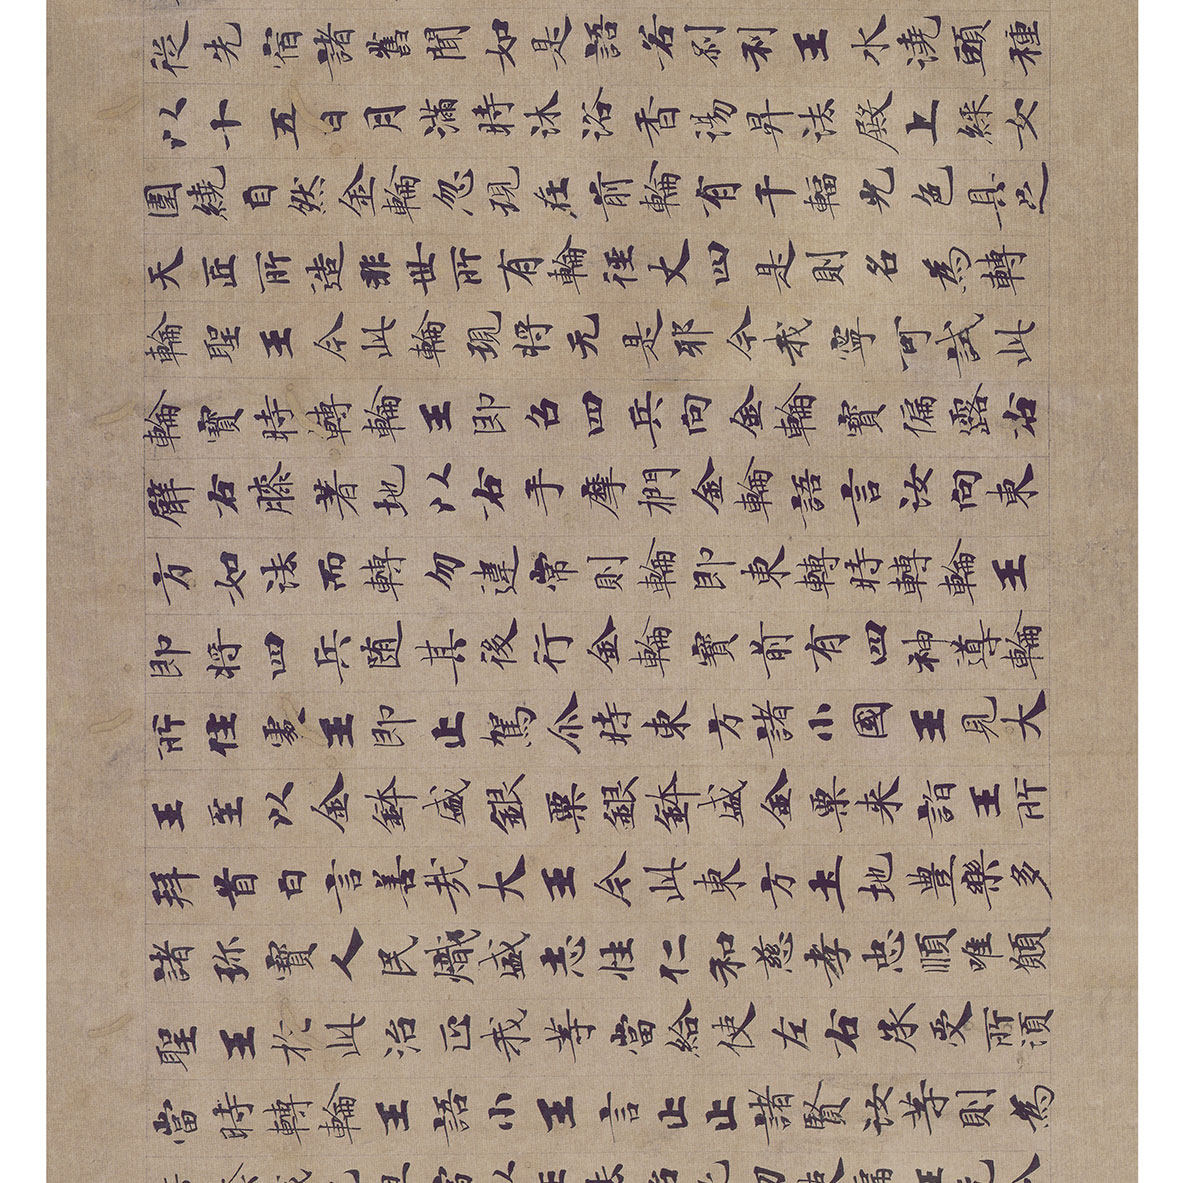 從先宿諸舊聞如是語若刹利王水澆頭種
以十五日月滿時沐浴香湯昇法殿上綵女
圍繞自然金輪忽現在前輪有千輻光色具足
天匠所造非世所有輪徑丈四是則名為轉
輪聖王今此輪現將无是邪今我寧可試此
輪寶時轉輪王即召四兵向金輪寶偏露右
臂右膝著地以右手摩捫金輪語言汝向東
方如法而轉勿違常則輪即東轉時轉輪王
即將四兵随其後行金輪寶前有四神導輪
所住處王即止駕尒時東方諸小國王見大
王至以金鉢盛銀粟銀鉢盛金粟来詣王所
拜首白言善哉大王今此東方土地豊樂多
諸珎寶人民熾盛志性仁和慈孝忠順唯願
聖王於此治正我等當給使左右承受所湏
當時轉輪王語小王言止止諸賢汝等則為